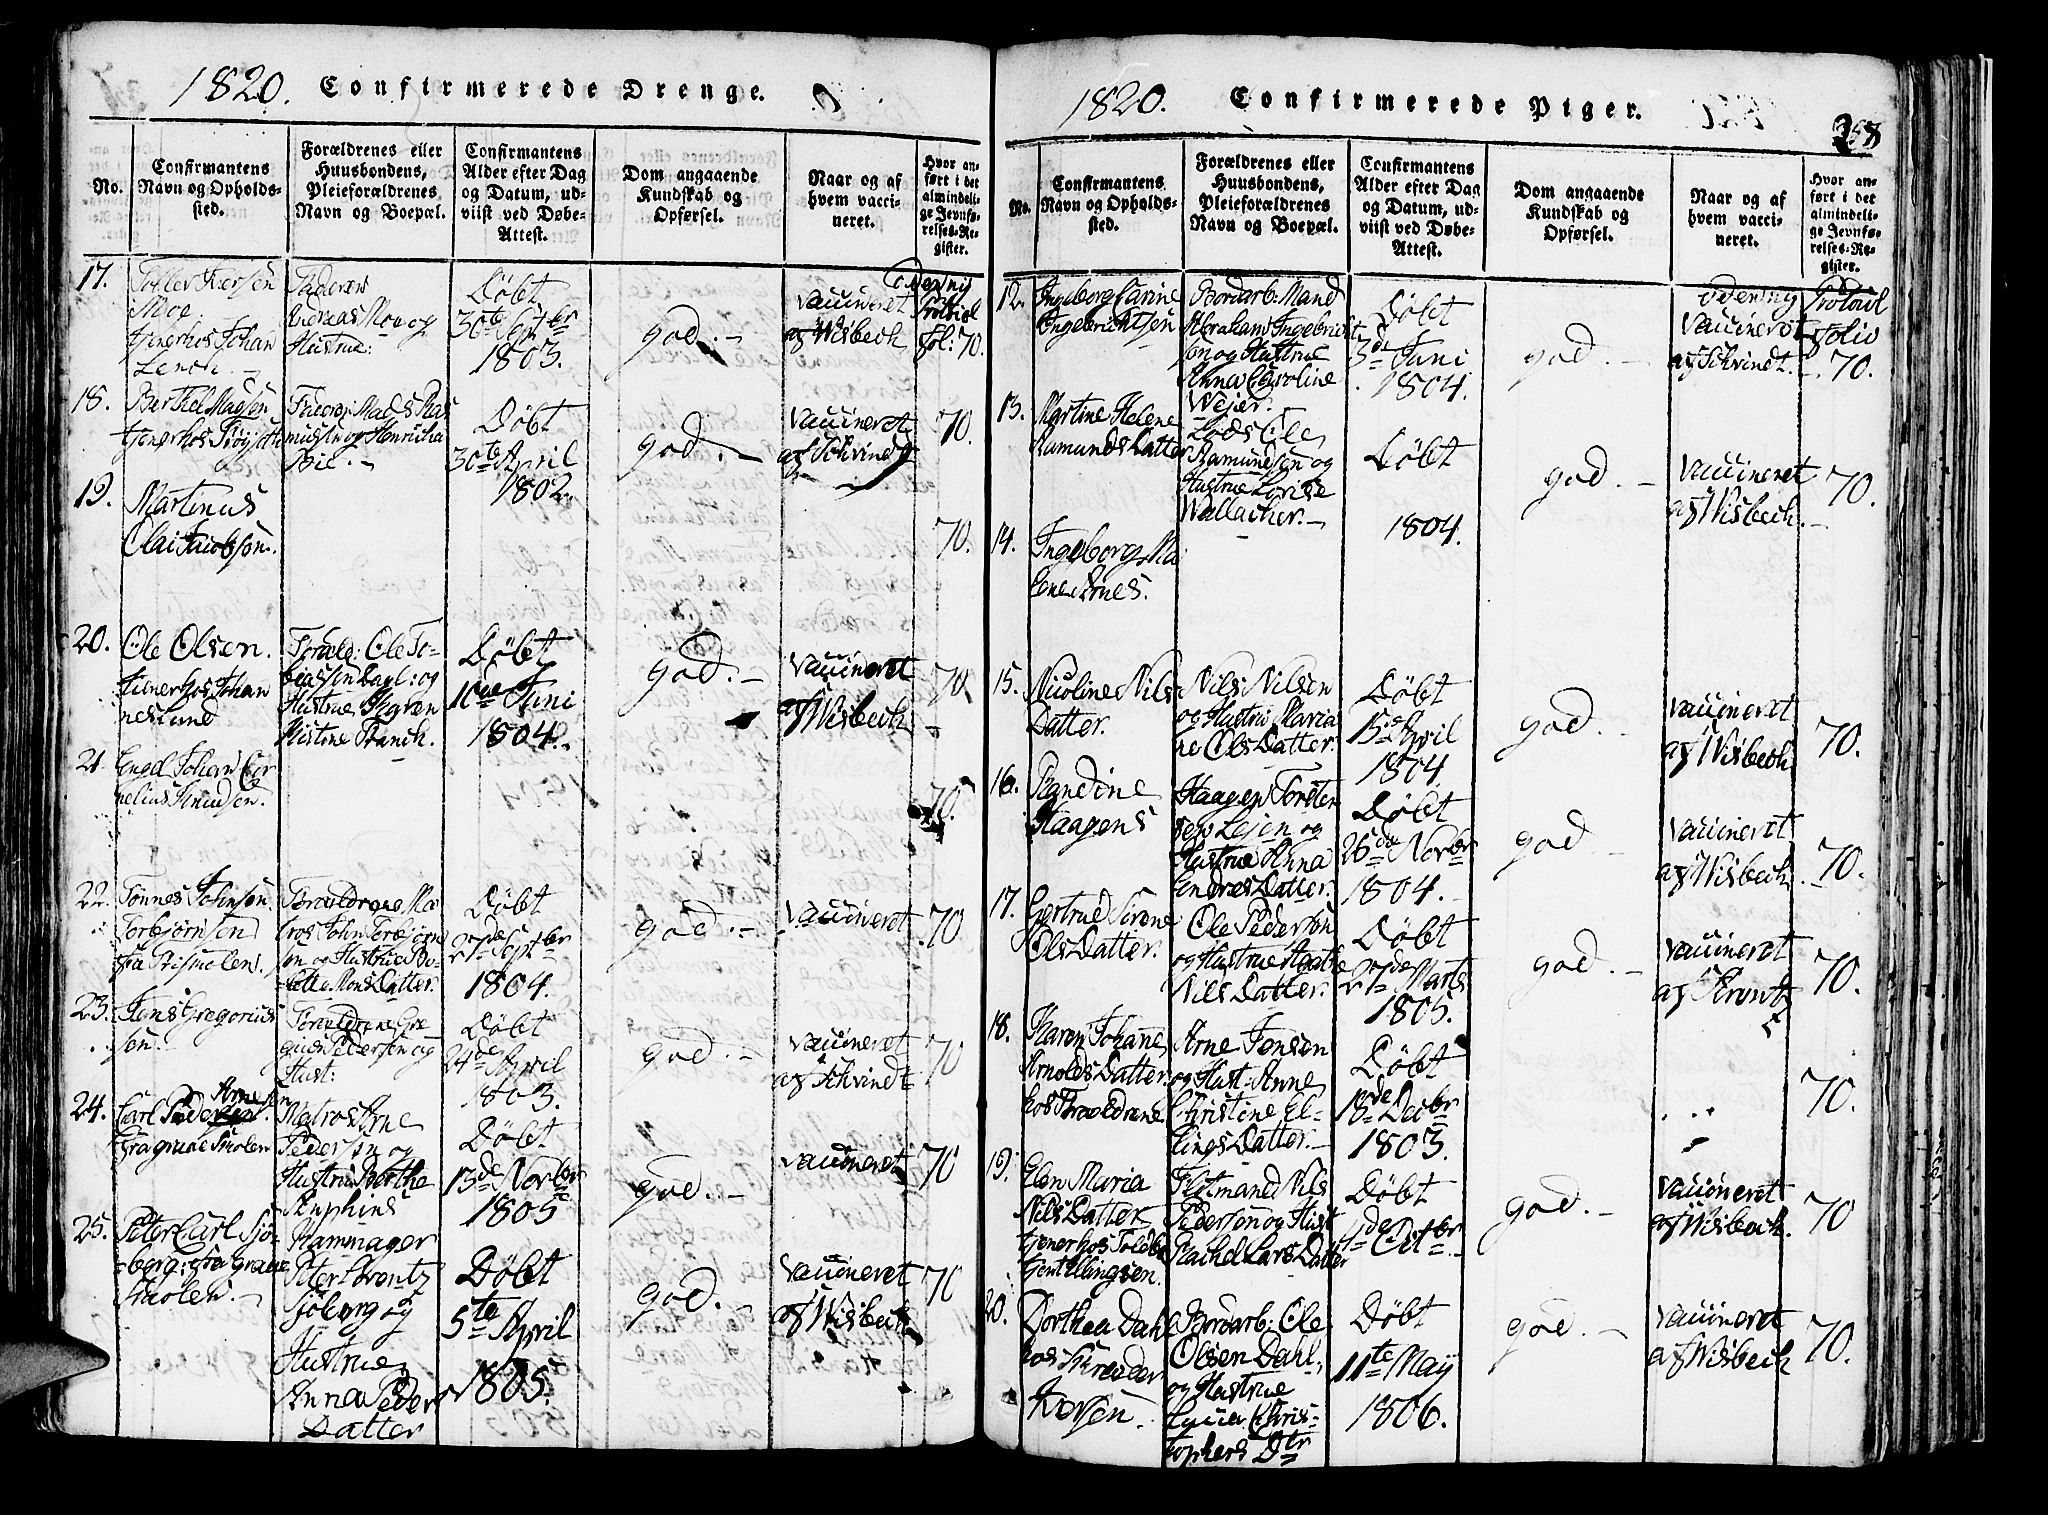 1820. Confirmerede Drenge.
No.
Confirmantens
Navn og Opholds-
sted.
Forældrenes eller
Huusbondens,
Pleieforældrenes
Navn og Boepæl.
Confirmantens
Alder efter Dag
og Datum, ud-
viist ved Døbe-
Attest.
Dom angaaende
Kundskab og
Opførsel.
Naar og af
hvem vacci-
neret.
Hvor an-
ført i det
almindeli-
ge Jevnfø-
relses-Re-
gister.
17.
Moe.
tjener hos Johan
Andreas Moe og
Hustrue:
Døbt
30te Septbr
1803.
god. -
Vaccineret
af Wisbech
Protocol
fol: 70.
18.
Berthel Madsen
tjener hos
Mads Ras
mussen og Henricha
Døbt
30te April
1802.
god. -
Vaccineret
af Schvindt
70.
19.
Martinus
Olai Jacobsen.
70.
20.
Ole Olsen.
tjener hos Johan
nes Lund
Foræld: Ole To-
biassen Dagl: og
Hustrue Karen
Kistine Franck.
Døbt
10de Juni
1804.
god. -
Vaccineret
af Wisbech
70
21.
Engel Johan Cor
nelius Knudsen.
70.
22.
Tønnes Johnsen
Torbjørnsen
fra Rismolen.
Forældrene Ma
tros John Torbjørn
sen og Hustrue Bo-
lette Mons Datter.
Døbt
27de Septbr
1804.
god. -
Vaccineret
70
23.
Jens Gregorius
sen.
Forældrene Gre-
gius Pedersen og
Hust:
Døbt
24de April
1803.
god. -
Vaccineret
af Schvindt
70
24.
Arnesen
Carl Pedersen.
fra grue Smolen
Matros Arne
Pedersen og
Hustru Berthe
Døbt
13de Novbr
1805
god. -
Vaccineret
70
25.
Peter Carl Sjø-
berg: fra Graae
Smolen. -
Kammager
Peter Lorentz
Sjøberg og
Hustrue
Anna Peder
Datter
Døbt
5te April
1805.
god. -
Vaccineret
af Wisbech
70
1820. Confirmerede Piger.
No.
Confirmantens
Navn og Opholds-
sted.
Forældrenes eller
Huusbondens,
Pleieforældrenes
Navn og Boepæl.
Confirmantens
Alder efter Dag
og Datum, ud-
viist ved Døbe-
Attest.
Dom angaaende
Kundskab og
Opførsel.
Naar og af
hvem vacci-
neret.
Hvor an-
ført i det
almindeli-
ge Jevnfø-
relses-Re-
gister.
12.
Ingeborg Carine
Ingebrichtsen
Bordarb: Mand
Abraham Ingebricht
sen og Hustrue
Anna Caroline
Wejer.
Døbt
3de Juni
1804.
god. -
Vaccineret
af Schvindt.
Protocol
Folio
70.
13.
Martine Helene
Ramunds Datter
Lods Ole
Ramundsen og
Hustrue Lovise
Wallacher. -
Døbt
1804.
god. -
Vaccineret
af Wisbech. -
70.
14.
Ingeborg Ma
lene Arnes.
15.
Nicoline Nils
Datter.
Nils Nilsen
og Hustru Maria
ne Ols Datter.
Døbt
15de April
1804.
god. -
Vaccineret
af Wisbech
70.
16.
Randine
Haagens
Haagen Torster
sen Lejen og
Hustrue Anna
Endres Datter.
Døbt
26de Novbr
1804. -
god. -
Vaccineret
af Wisbech
70.
17.
Gertrud Sirene
Ols Datter.
Ole Pedersen
og Hustrue Agathe
Nils Datter.
Døbt
27de Marts
1805.
god. -
Vaccineret
af Krontz
70.
18.
Karen Johanne
Arnolds Datter.
hos Forældrene
Arne Jensen
og Hust: Anne
Christine El-
lings Datter. -
Døbt
18de Decbr
1803.
70.
19.
Elen Maria
Nils Datter
tjener hos Toldbe
tjent Ellingsen.
Flotmand Nils
Pedersen og Hust
Rachel Lars Datter
Døbt
4de Octbr.
god. -
Vaccineret
af Wisbech.
70
20.
Dorthea Dahl
hos Skredder
Bordarb: Ole
Olsen Dahl,
og Hustrue
Lucia Chris-
tophers Dtr
Døbt
11te May
1806.
god. -
Vaccineret
af Wisbech
70.